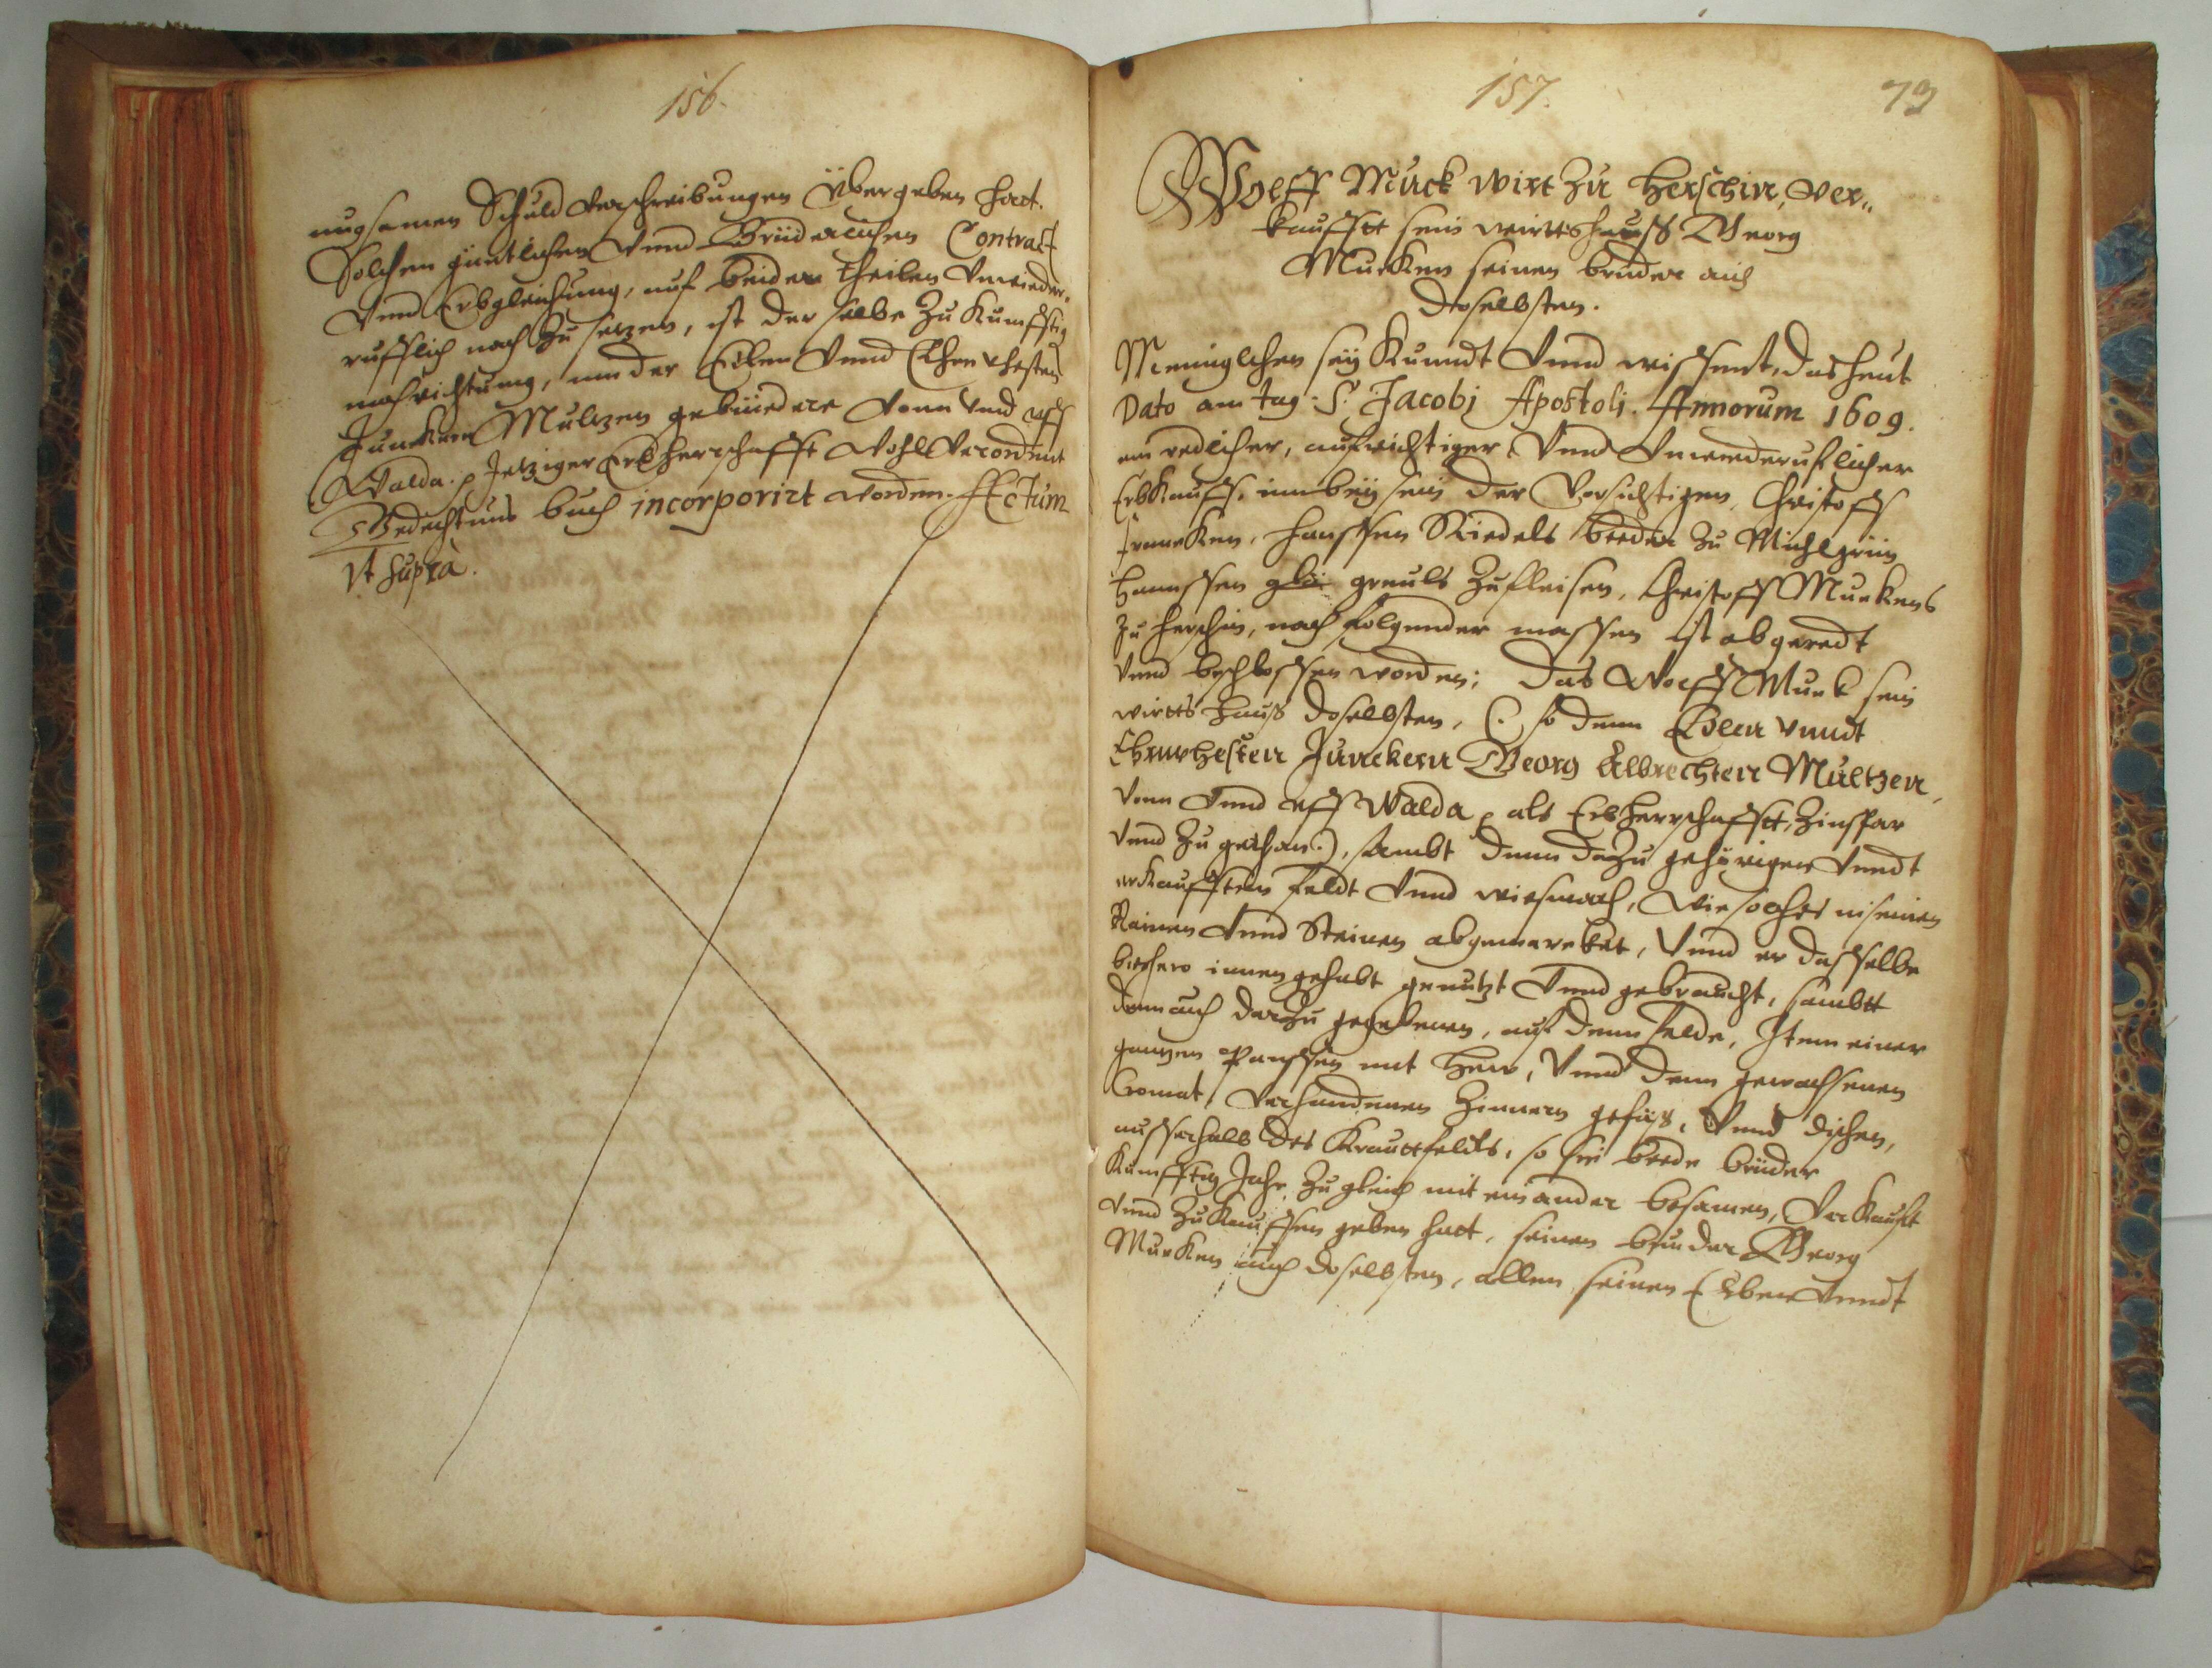 156.
nugsamen Schuld verschreibungen Übergeben hat.
Solchen güntlichen Vnnd Brüderlichen Contract
Vnnd Erbgleichung, auf beiden theilen Vnwieder-
rufflich nach zu setzen, ist der selbe zu Künfftig
nachrichtung, inn der Edlen Vnnd Ehrnvhesten
Junckern Multzen gebrüedere Vonn Vnd uff
Walda. p Jetziger Erbherrschafft Wohl Verordent
Gedechtnus buch incorporirt worden. Actum
Vt supra.
157.
79
Wolff Muck wirt zu Herschin, Ver„
kaufftt sein wirttshauß Georg
Mucken seinen bruder auch
doselbsten.
Meniglichen seÿ Kunndt Vnnd wissent, das heut
Dato am tag S. Jacobj Apostolj. Annorum 1609.
ein redlicher, aufrichtiger Vnnd Vnwiederuflicher
ErbKauff, inn beÿ sein der Vorsichtigen, Christoff
Francken, Hanssen Riedels beeden zu Mühlgrün
Hannssen greuls zu fleisen, Christoff Muckens
zu herschin, nach folgender massen ist abgeredt
Vnnd beschlossen worden; Das Wolff Muck sein
wirtts Hauß doselbsten, (. so denn Edlen Vnndt
Ehrnvhesten Junckern Georg Albrechten Multzen,
Vonn Vnnd uff Walda p als Erbherrschafftt, Zinßbar
Vnnd zu gethan.), sambt denn dazu gehörigen Vnndt
erkaufften feldt Vnnd wiesmath, wie solches in seinen
Rainen Vnnd Steinen abgemarcket, Vnnd er dasselbe
bißhero innen gehabt genutzt Vnnd gebraucht, sambtt
denn auch darzu gegebenen, auf denn felde, Item einer
gantzen Panssen mit Hew, Vnnd denn gewachsenen
Gromat, Vorhandenen Zinnern gefäß, Vnnd dischen,
ausserhalb des Krauttfeldts, so sie beede brüder
Künfftig Jahr, zu gleich mit einander besamen, Verkaufft
Vnnd zu Kauffen geben hatt, seinen bruder Georg
Mucken auch doselbsten, allen seinen Erben Vnndt